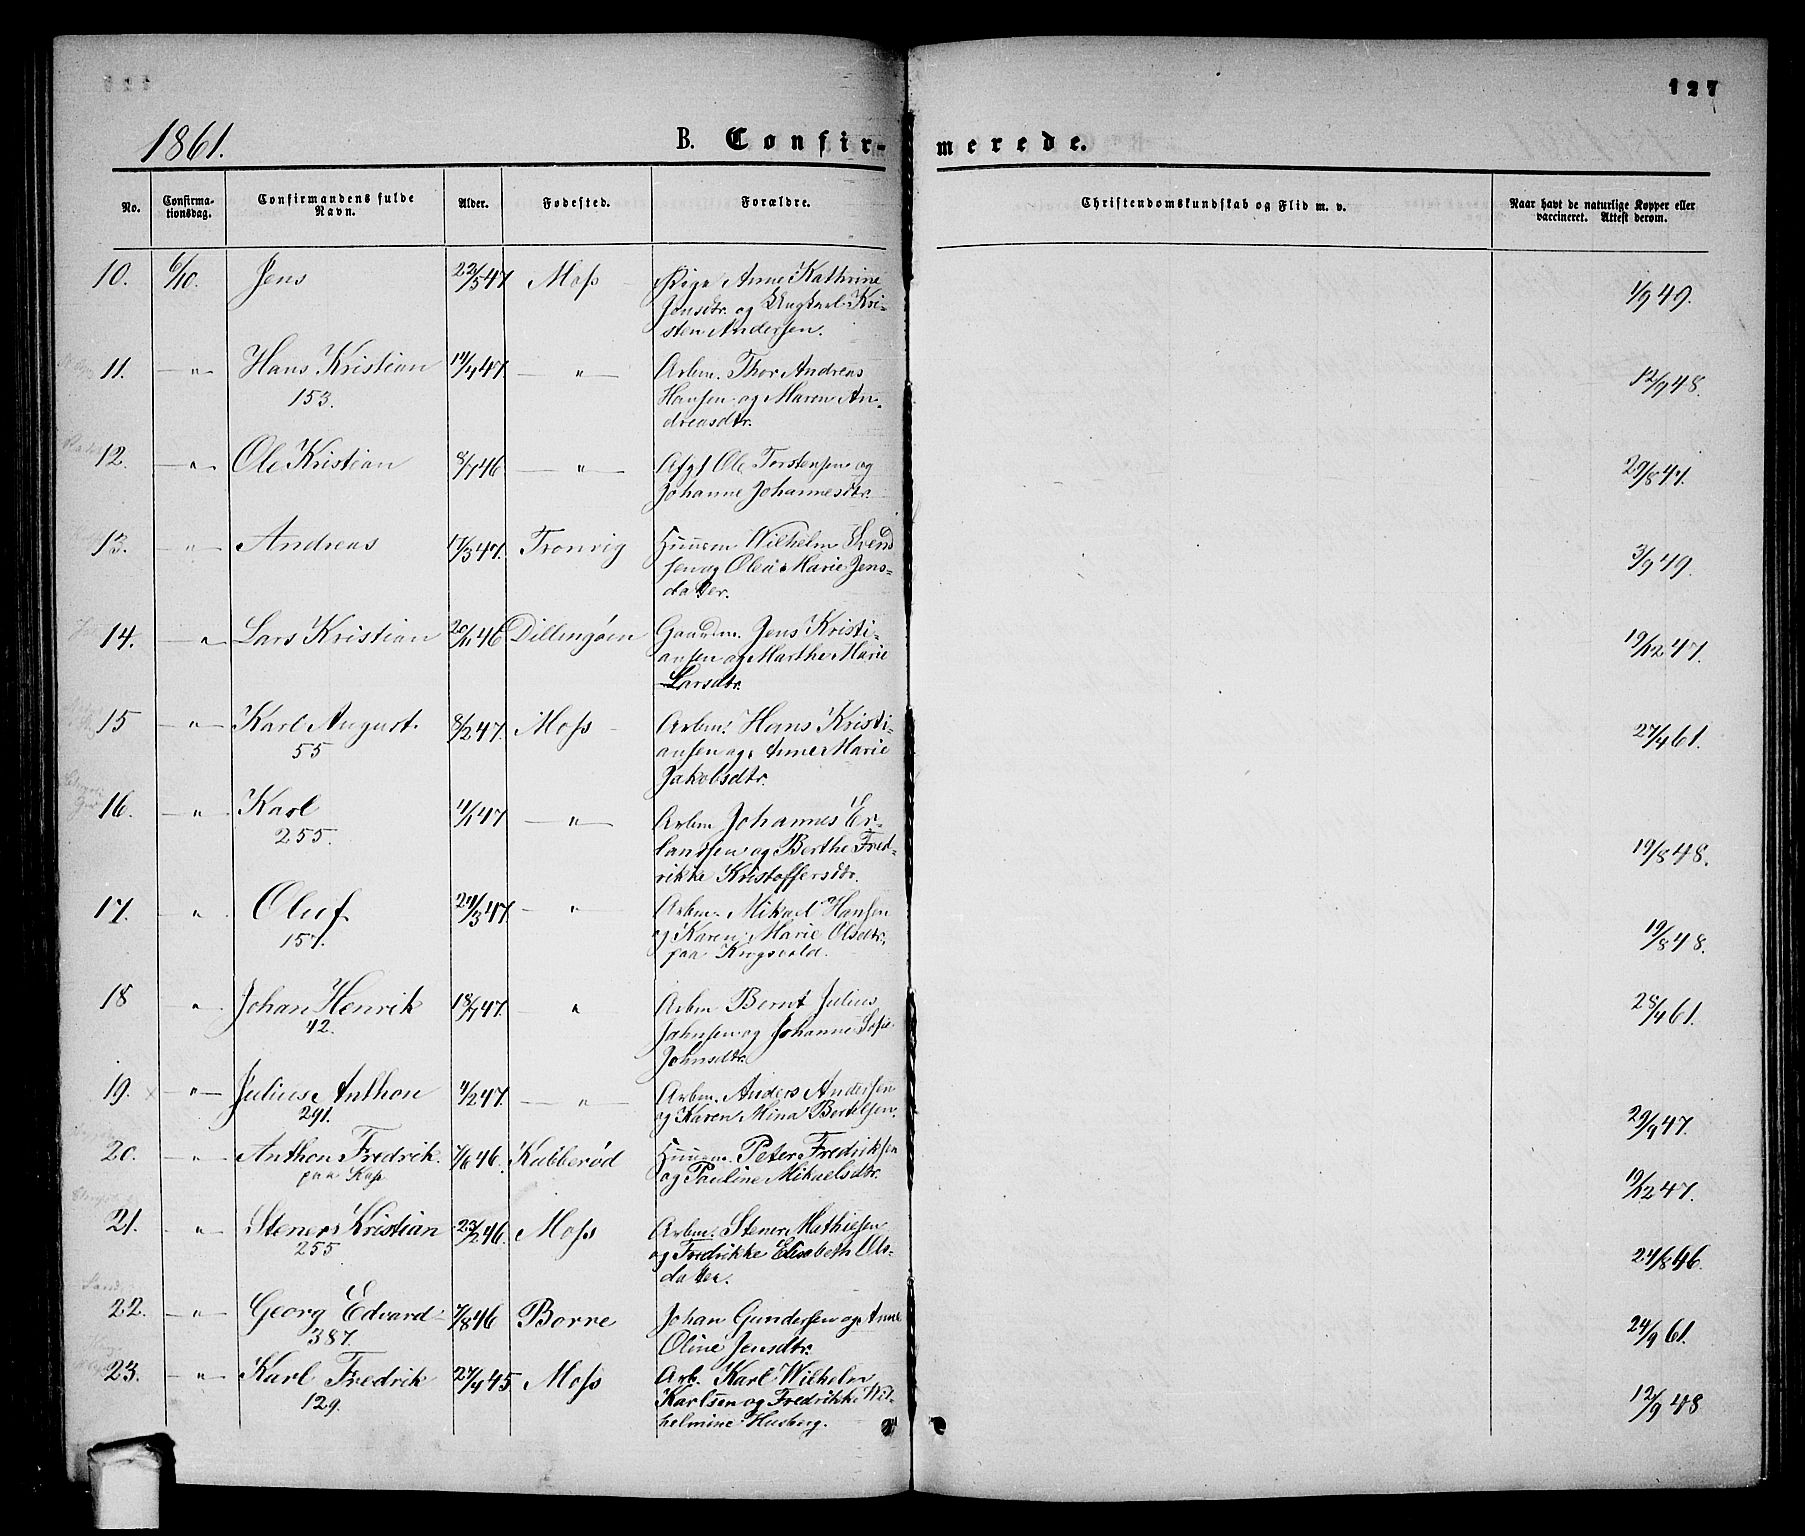 127
1861.
B. Confirmerede.
No. Confirmationsdag. Confirmandens fulde Navn. Alder. Fødested. Forældre. Christendomskundskab og Flid m. v. Naar havt de naturlige Kopper eller vaccineret. Attest derom.
10. 6/10. Jens 22/5 47 Moss Pige Anne Kathrine
Jensdtr. og Ungkarl Kri-
sten Andersen. 1/9 49.
11. — " — Hans Kristian 47. — " — Arbm. Thor Andreas
153. Hansen og Maren An-
dreasdtr. 12/9 48.
12. — " — Ole Kristian 46 — " — Afgl. Ole Torstensen og
Johanne Johannesdtr. 29/8 47.
13. " Andreas 17/3 47. Tronvig Huusm Wilhelm Svend
sen og Olea Marie Jens-
datter. 3/9 49.
14. — " Lars Kristian 46 Dillingøen Gaardm. Jens Kristi-
ansen og Marthe Marie
Larsdtr. 19/12 47.
15 — " — Karl August. 8/2 47. Moss Arbm. Hans Kristi-
55 ansen og Anne Marie
Jakobsdtr. 27/4 61.
16. — " — Karl 47 — " — Arbm Johannes Er-
255. landsen og Berthe Fred-
rikke Kristoffersdtr. 19/8 48.
17. " Oluf 47. — " — Arbm. Mikael Hansen
157. og Karen Marie Olsdtr.
paa Krogsvold. 19/8 48.
18 " Johan Henrik 47. " Arbm Bernt Julius
42. Jahnsen og Johanne Sofie
Johnsdtr. 28/4 61.
19. — " — Julius Anthon 47. — " — Arbm. Anders Andersen
291. og Karen Mina Bertelsen. 29/9 47.
20. — " — Anthon Fredrik. 7/6 46. Kubberød Huusm. Peter Fredriksen
paa Kass og Pauline Mikaelsdtr. 19/12 47.
21. " Stener Kristian 23/2 46. Moss Arbm. Stener Mathiesen
255 og Fredrikke Elisabeth Ols-
datter. 24/8 46.
22. — " — Georg Edvard 7/8 46 Borre Johan Gundersen og Anne
387. Oline Jensdtr. 24/9 61.
23. — " — Karl Fredrik 27/4 45 Moss Arb. Karl Wilhelm
129. Karlsen og Fredrikke Wil-
helmine Husberg. 12/9 48